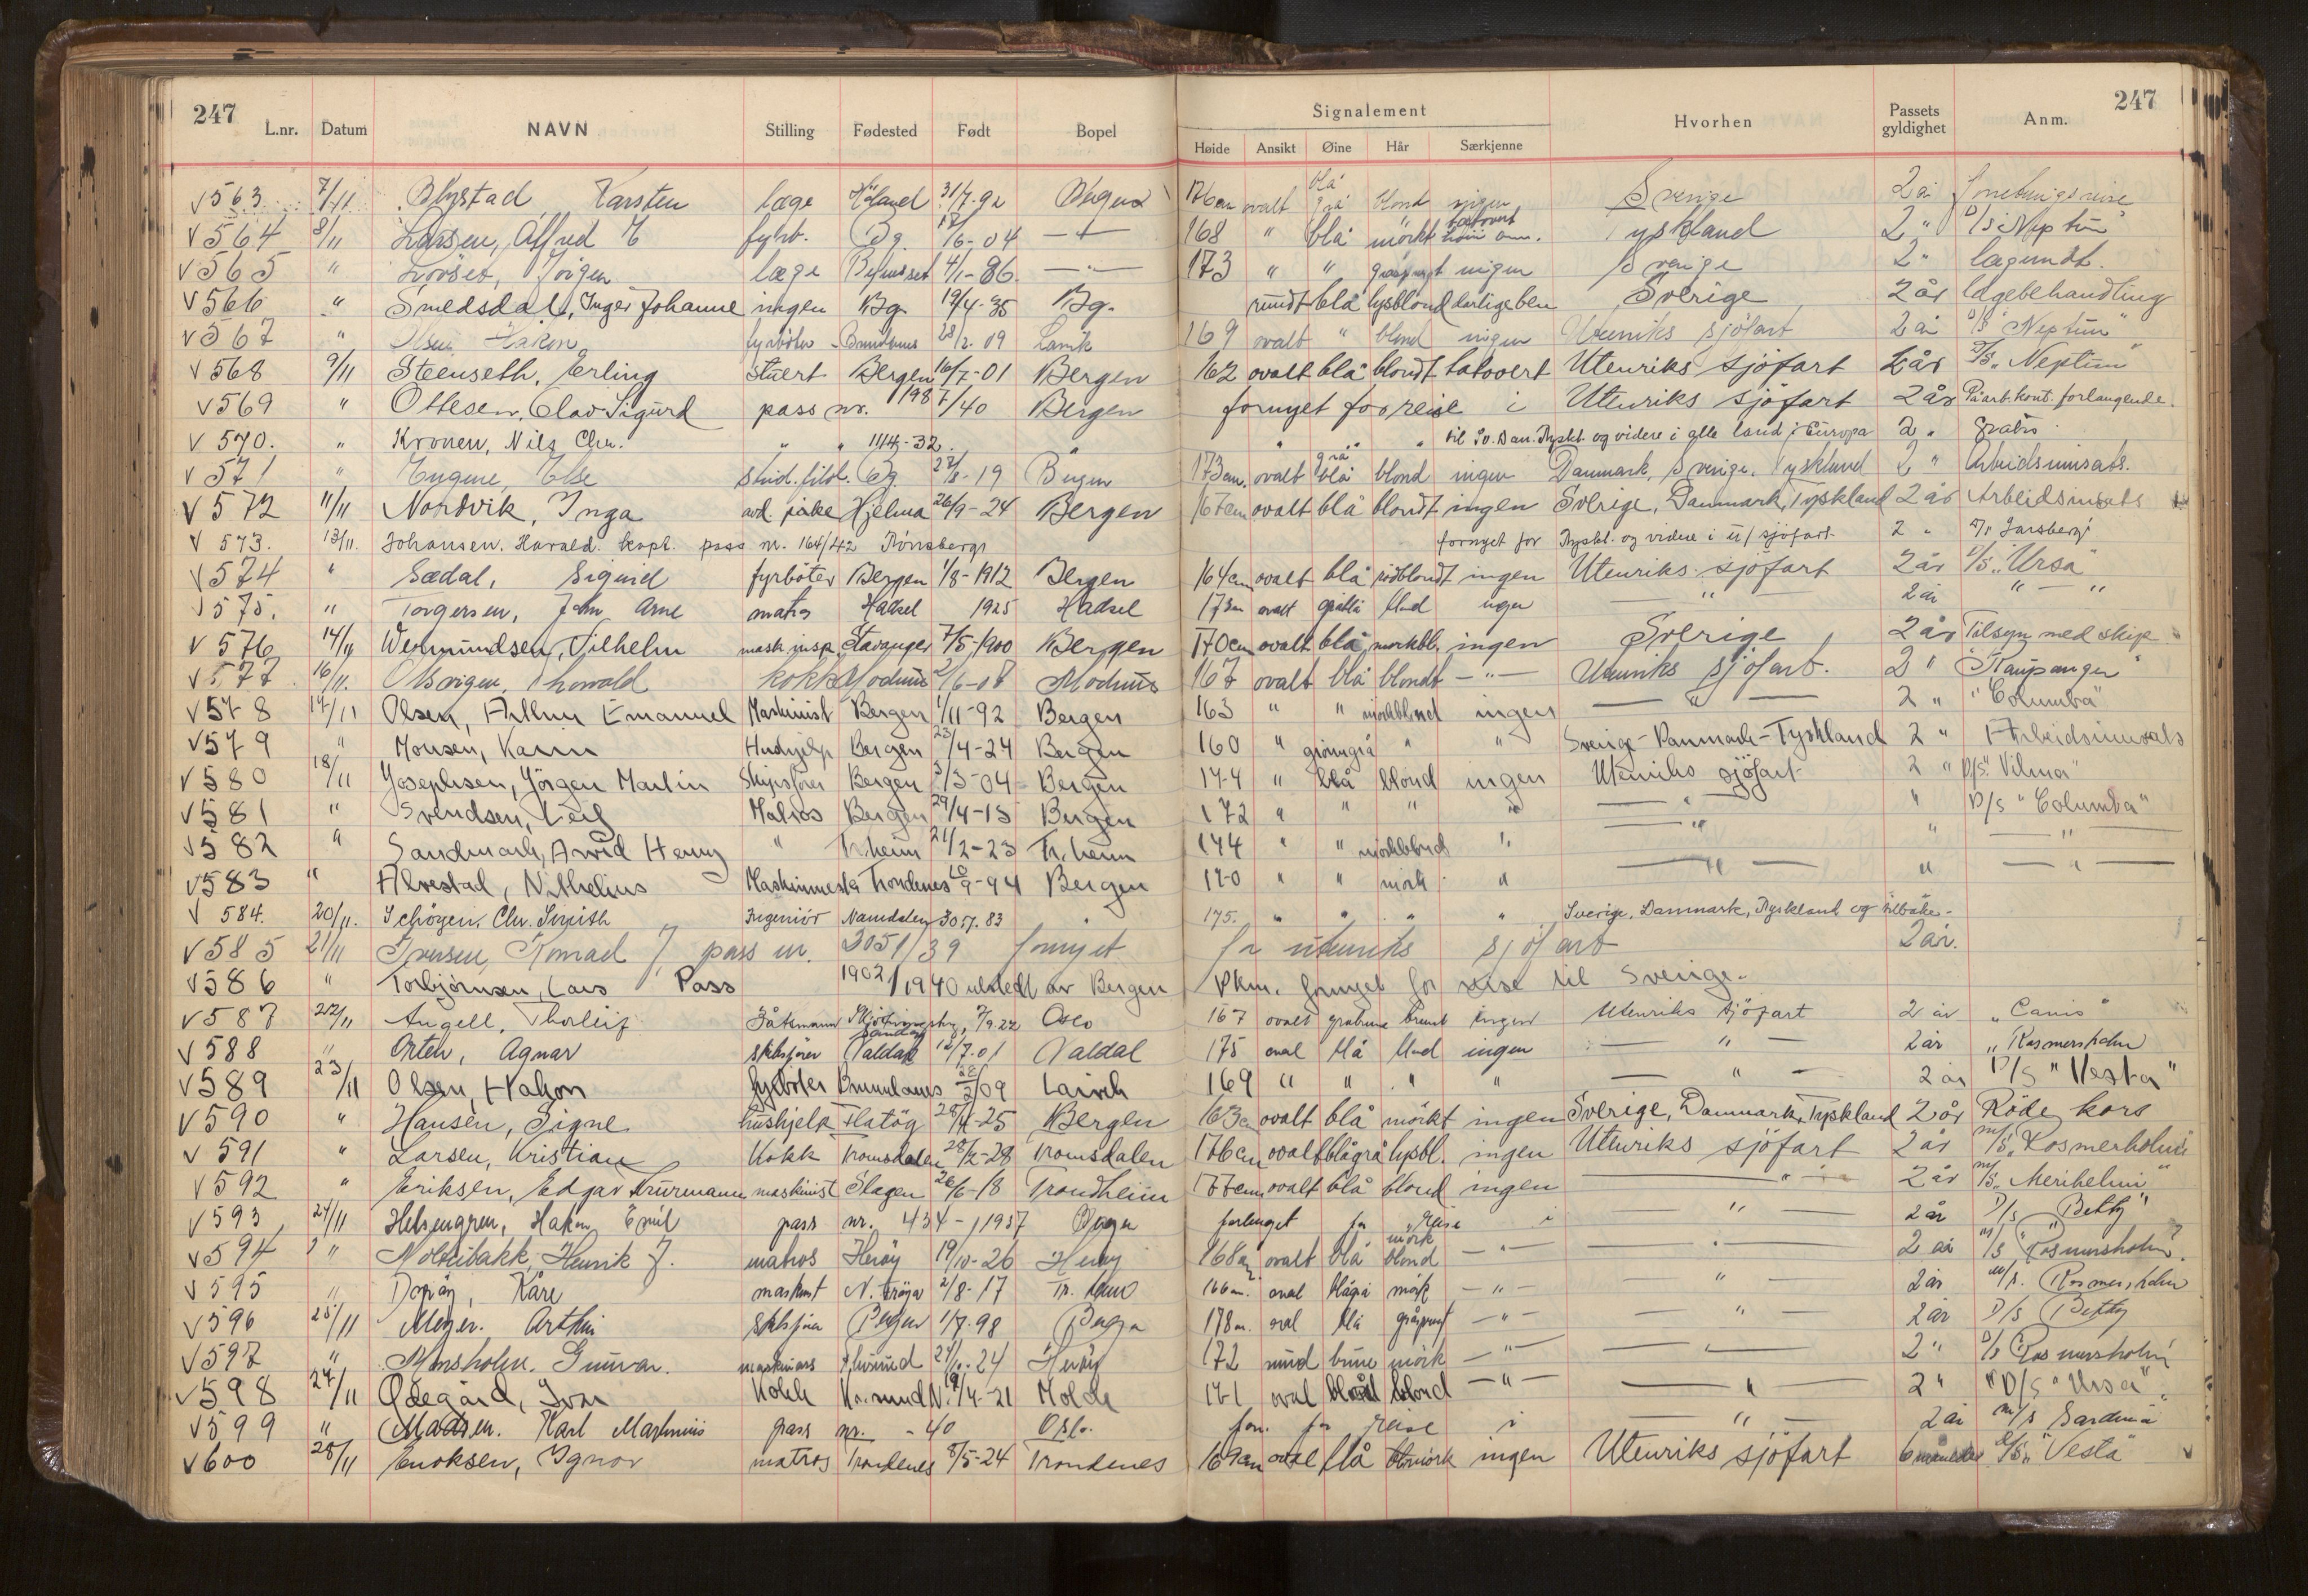 247
L.nr. Datum NAVN Stilling Fødested Født Bopel
Signalement Hvorhen Passets gyldighet Anm. 247
Høide Ansikt Øine Hår Særkjenne
V 563 7/11 Blystad Karsten læge Höland 31/7-92 Bergen 176 cm ovalt blå grå blond ingen Sverige 2 år
V 564 8/11 Larsen, Alfred fyrb. Bg. /6-04 — " — 168 " blå mörkt tatovert Tyskland 2 " D/S "Neptun"
V 565 " Lövset, Jörgen læge 4/1-86 — " — 173 " " ingen Sverige 2 "
V 566 " Smedsdal, Inger Johanne ingen Bg. 19/4-35 Bg. rundt blå lysblond ben Sverige 2 år lægebehandling
V 567 " Olsen Håkon fyrböter Brunlanes 28/2-09 Larvik 169 ovalt " blond ingen Utenriks sjöfart 2 år D/S "Neptun"
V 568 9/11 Steenseth, Erling stuert Bergen 16/7-01 Bergen 162 ovalt blå blondt tatovert Utenriks sjöfart 2 år D/S "Neptun"
V 569 " Ottesen, Olav Sigurd pass nr. 198/40 Bergen fornyet for reise i Utenriks sjöfart 2 år På arb.kont. forlangende.
V 570. " Kronen, Nils Chr. " " 1114-32. " " " til Sv. Dan. Tyskl. og videre i alle land i Europa 2 " Gratis
V 571 " Eugene, Else stud. filol. Bg. 27/8-19 Bergen 173 cm. ovalt grå blå blond ingen Danmark, Sverige, Tyskland 2 " Arbeidsinnsats.
V 572 11/11 Nordvik, Inga Hjelma 26/9-24 Bergen 167 cm ovalt blå blondt ingen Sverige, Danmark, Tyskland 2 år Arbeidsinsats
V 573. 13/11. Johansen. Harald. kapt. pass nr. 164/42 Tönsberg fornyet for Tyskl. og videre i u/sjöfart 2 " "Jarsberg"
V 574 " Sædal, Sigurd fyrböter Bergen 1/8-1912 Bergen 164 cm ovalt blå rödblondt ingen Utenriks sjöfart 2 år D/S "Ursa"
V 575. " Torgersen, John Arne matros Hadsel 1925 Hadsel 173 cm ovalt gråblå blond ingen — " — 2 år " — "
V 576 14/11 Wermundsen, Vilhelm mask. insp. Stavanger 7/5-1900 Bergen 170 cm ovalt blå, mörkbl. ingen Sverige 2 år Tilsyn med skip
V 577 16/11. Thorvald kokk Modum 2/6-07 Modum 167 ovalt blå blondt — " — Utenriks sjöfart. 2 " "Kaupanger"
V 578 17/11 Olsen, Arthur Emanuel Maskinist Bergen 1/11-92 Bergen 163 " " mörkblond ingen — " — 2 " "Columba"
V 579 " Monsen, Karin Hushjelp Bergen 23/4-24 Bergen 160 " gröngrå " " Sverige-Danmark-Tyskland 2 " Arbeidsinnsats
V 580 18/11 Josephsen, Jörgen Martin Skipsförer Bergen 3/3-04 Bergen 174 " blå blond ingen Utenriks sjöfart 2 " D/S "Vilma"
V 581 " Svendsen, Leif Matros Bergen 29/4-15 Bergen 172 " " " " — " — " D/S "Columba"
V 582 " Sandmark, Arvid Henry " Tr.heim 21/2-23 Tr.heim 174 " " mörkblond " — " — " — " —
V 583 " Alvestad, Nithelius Trondenes 20/9-94 Bergen 170 " " mörk " — " — " — " —
V 584. 20/11. Schöyen, Chr. Smith Ingeniör Namdalen 30/7. 83 " 175. " " " " Sverige, Danmark, Tyskland og tilbake
V 585 21/11 Iversen, Konrad J. pass nr. 3051/39 fornyet for utenriks sjöfart 2 år.
V 586 " Torbjörnsen, Lars Pass 1902/1940 utstedt av Bergen Pkm. fornyet for reise til Sverige.
V 587 22/11 Angell, Thorleif Båtsmann /9.22 Oslo 167 ovalt gråbrune brunt ingen Utenriks sjöfart 2 år "Canis"
V 588 " Orten, Agnar skibsförer Sandöy Valdal /7.01 Valdal 175 oval blå blond ingen — " — 2 år "Rosmersholm
V 589 23/11 Olsen, Håkon fyrböter Brunlanes 28/2/09 Larvik 169 " " " " — " — 2 år D/S "Vesta"
V 590 " Hansen, Signe hushjelp Flatöy 28/4-25 Bergen 163 cm ovalt blå mörkt ingen Sverige, Danmark, Tyskland 2 år Röde kors
V 591 " Larsen, Kristian Kokk Tromsdalen 28/2-28 Tromsdalen 176 cm ovalt blågrå lysbl. ingen Utenriks sjöfart 2 år M/S "Rosmerholm"
V 592 " Eriksen, Edgar Thurmann maskinist Slagen 26/6-18 Trondheim 177 cm ovalt blå blond ingen — " — 2 år M/S "Meribelm"
V 593 24/11 Helsengren, Hakon Emil pass nr. 434-/1937 Bergen forlenget for reise i — " — 2 år D/S "Betty"
V 594 " Henrik J. matros Heröy 19/10-26 Heröy 168 cm ovalt blå mörk blond — " — — " — 2 år M/S "Rosmersholm".
V 595 " Kåre maskinist N. Fröya 2/8-17 Tr. heim 166 cm. oval blågrå mörk — " — — " — 2 år M/S. Rosmersholm
V 596 25/11 Meyer. Arthur skibsförer Bergen 1/7-98 Bergen 178 cm. oval blå gråsprengt — " — — " — 2 år D/S Betty
V 597 " Gunvar. 24 Heröy 172 rund brune mörk — " — — " — 2 " Rosmersholm
V 598 27/11 Ödegård, Ivar Kokk Kr.sund N. /4-21 Molde 171 oval blå blond — " — — " — 2 " "D/S "Ursa"
V 599 " Madsen. Karl Martinius pass nr. -40 Oslo. forn. for reise i — " — 2 år M/S Sardinia
V 600 28/11 Enoksen, Ignor matros Trondenes 8/5-24 Trondenes 169 cm oval blå mörk ingen Utenriks sjöfart 6 måneder D/S "Vesta"